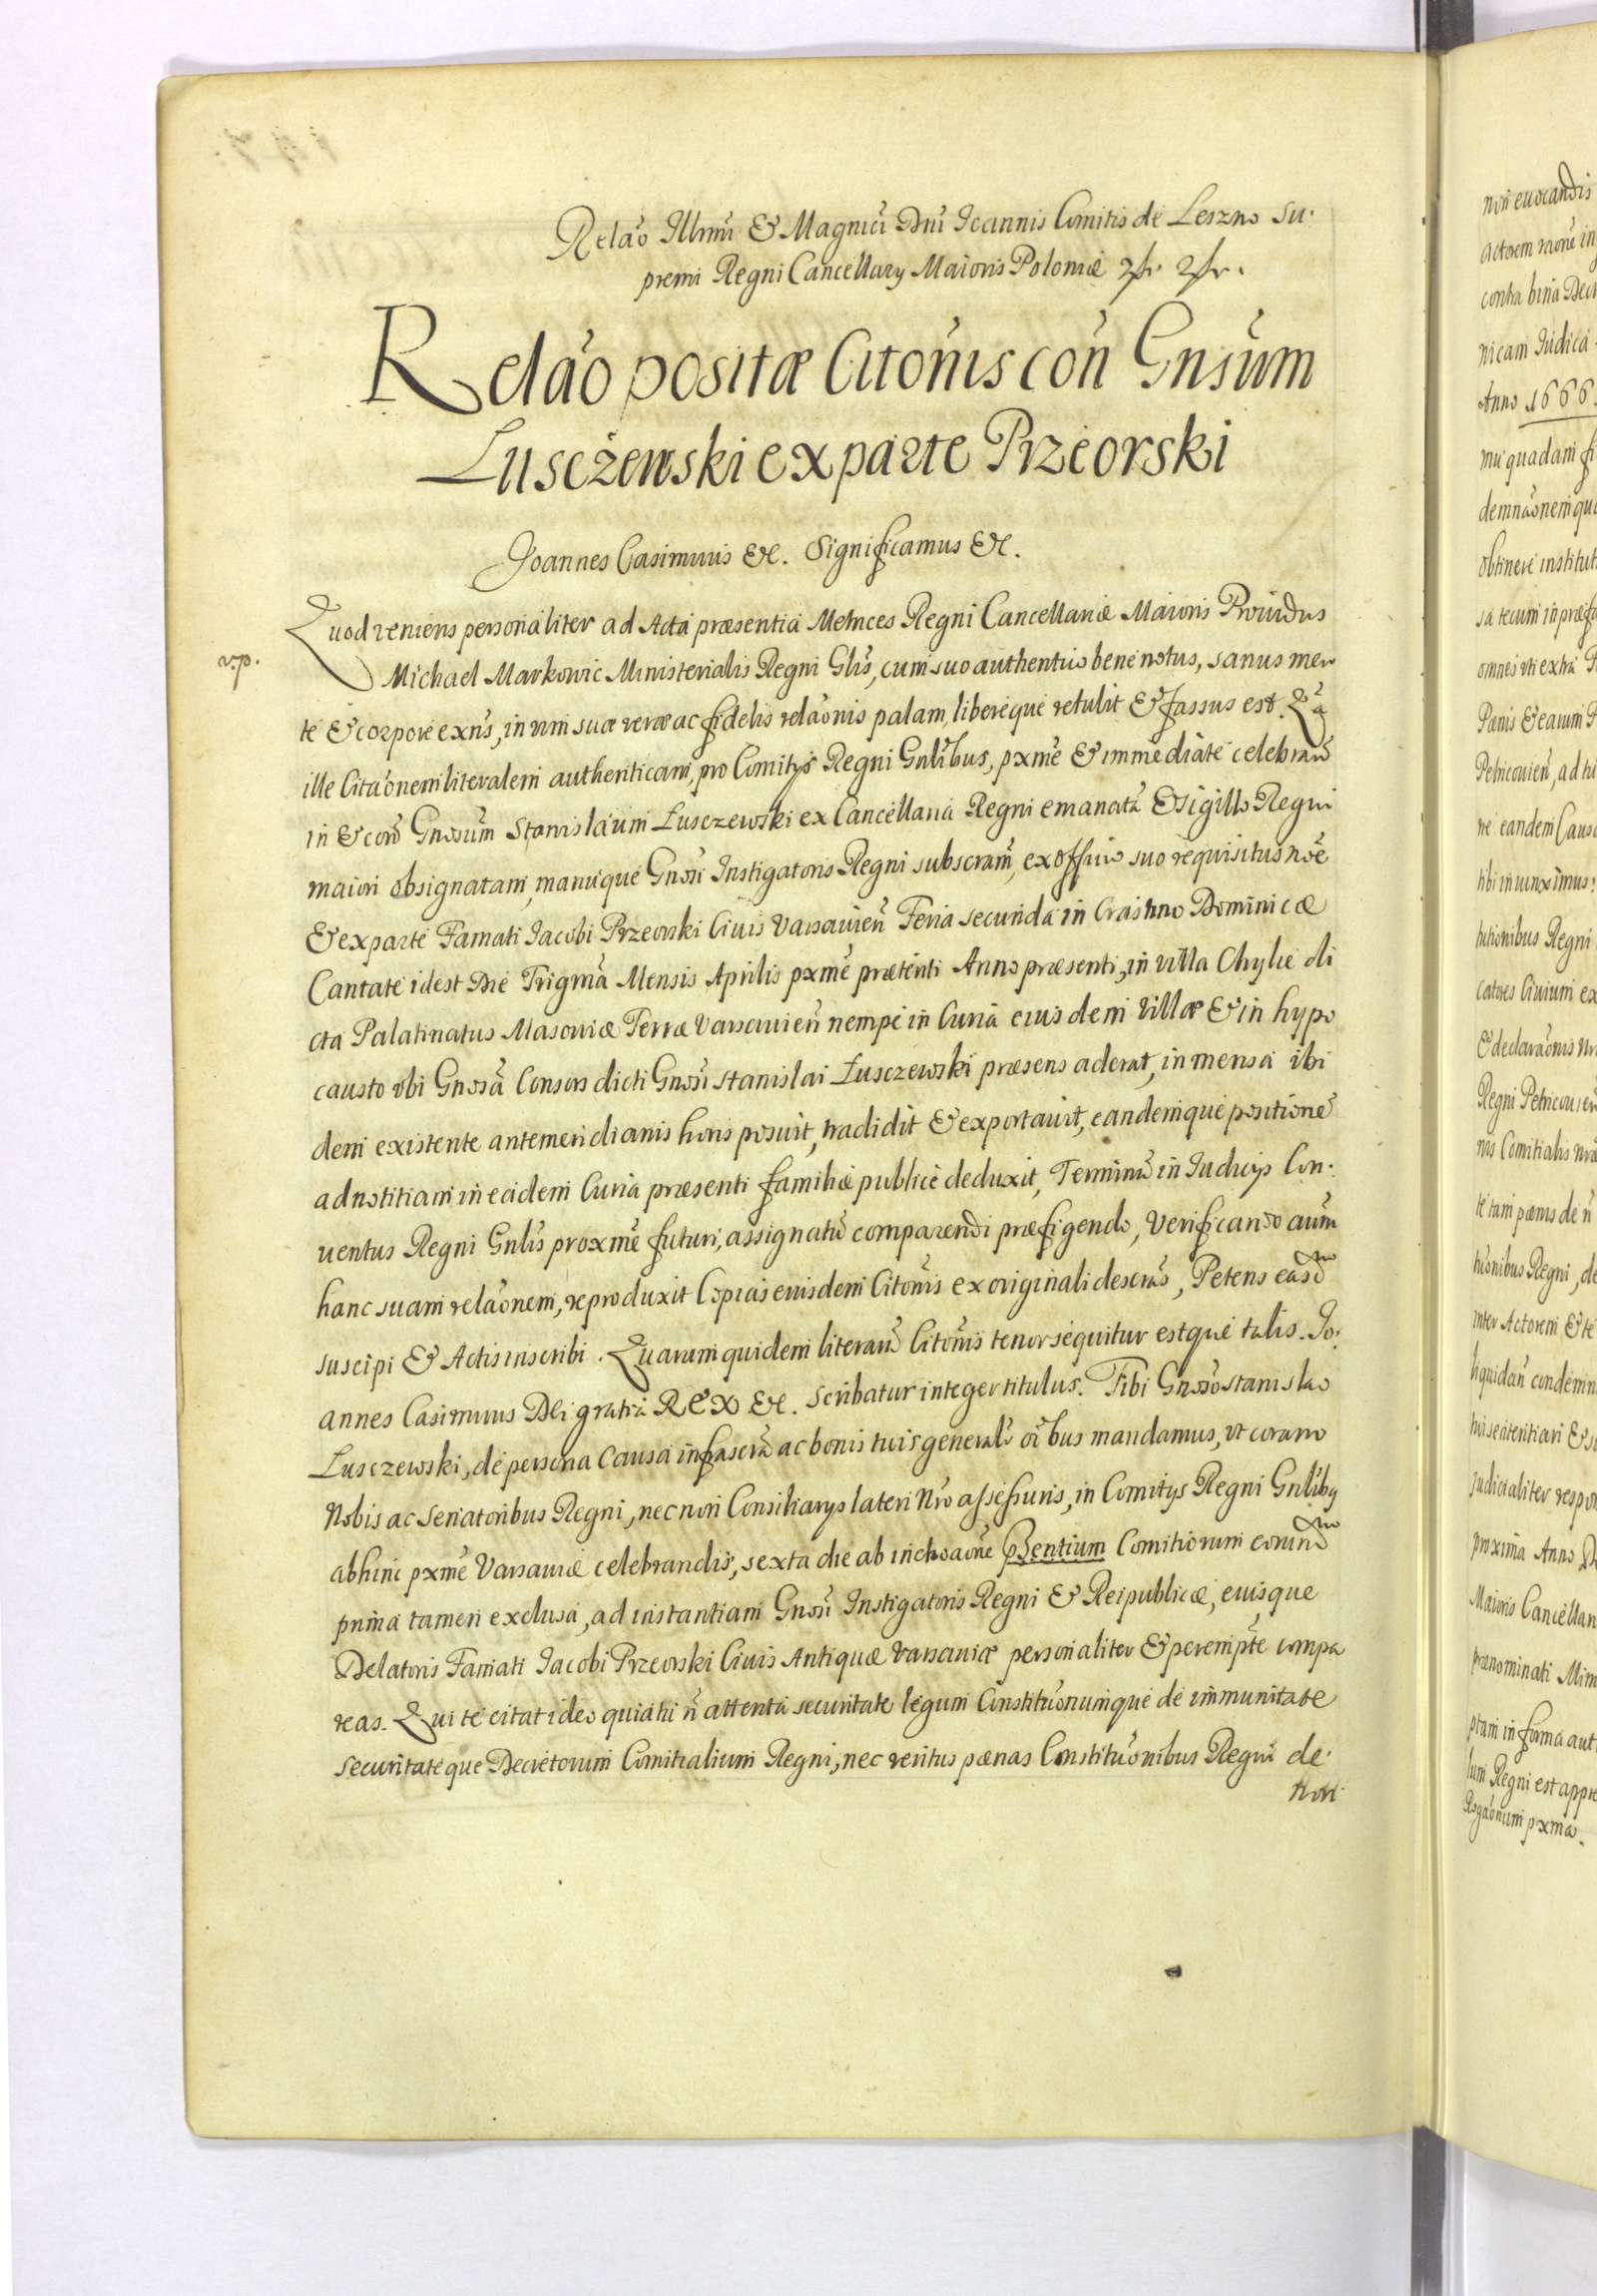 Relaõ Illmi & Magnici Dni Ioannis Comitis de Leszno Su-
premi Regni Cancellarij Maioris Poloniæ
Relaõ positæ Citonis con Gnsum
Lusczewski ex parte Przeorski
Joannes Casimirus &c. Significamus &c.
Quod veniens personaliter ad Acta præsentia Metrices Regni Cancellariæ Maioris Prouidus
v.p.
Michael Markowic Ministerialis Regni Glis, cum suo authentico bene notus, sanus men
te & corpore exns, in vim suæ veræ ac fidelis relaõnis palam, libereque retulit & fassus est. Qa
ille Citaõnem literalem authenticam, pro Comitijs Regni Gnlibus, pxme & immediate celebran
in & con Gnosum Stanislaum Lusczewski ex Cancellaria Regni emanatã & sigillo Regni
maiori obsignatam, manuque Gnosi Instigatoris Regni subscram, ex officio suo requisitus nõe
& ex parte Famati Iacobi Przeorski Ciuis Varsauien Feria secunda in Crastino Dominicæ
Cantate idest Die Trigma Mensis Aprilis pxme præteriti Anno præsenti, in villa Chylie di
cta Palatinatus Masouiæ Terræ Varsauien nempe in Curia eius dem villæ & in hypo
causto vbi Gnosa Consors dicti Gnosi Stanislai Lusczewski præsens aderat, in mensa ibi
dem existente antemeridianis horis posuit, tradidit & exportauit, eandemque positionẽ
ad notitiam in eadem Curia præsenti familiæ publice deduxit, Terminũ in Iudicijs Con-
uentus Regni Gnlis proxme futuri, assignatũ comparendi præfigendo, Verificando autm
hanc suam relaõnem, reproduxit Copias eiusdem Citonis ex originali descras, Petens easd
suscipi & Actis inscribi. Quarum quidem literarũ Citonis tenor sequitur estque talis. Jo-
annes Casimirus Dei gratia REX &c. scribatur integer titulus. Tibi Gnoso Stanislao
Lusczewski, de persona causa infrascrã ac bonis tuis generalr oibus mandamus, vt coram
Nobis ac Senatoribus Regni, necnon Consiliarys lateri Nro assessuris, in Comitijs Regni Gnlibq
abhinc pxme Varsauiæ celebrandis, sexta die ab inchoaõne pnsentium Comitiorum eorund
prima tamen exclusa, ad instantiam Gnosi Instigatoris Regni & Reipublicæ, eiusque
Delatoris Famati Iacobi Przeorski Ciuis Antiquæ Varsauiæ personaliter & perempte compa
reas. Qui te citat ideo quia tu ñ attenta securitate legum Constituõnumque de immunitate
securitateque Decretorum Comitialium Regni, nec veritus pænas Constituõnibus Regni de
non euocandis
actorem raõne in
contra bina Decr
nicam Iudica
Anno 1666.
demnaõnem qu
obtinere institut
sa tecum in præf
omnes vti extra
Petricouien, ad tu
re eandem Causa
tibi iniunximus
tutionibus Regni
catores Ciuium ex
& declaraõnis
nis Comitialis
te tam pænis de
inter Actorem & te
liquidan condemn
iudicialiter respon
proxima Anno
Maioris Cancellar
prænominati Min
ptam in forma aut
lum Regni est appre
pxma.